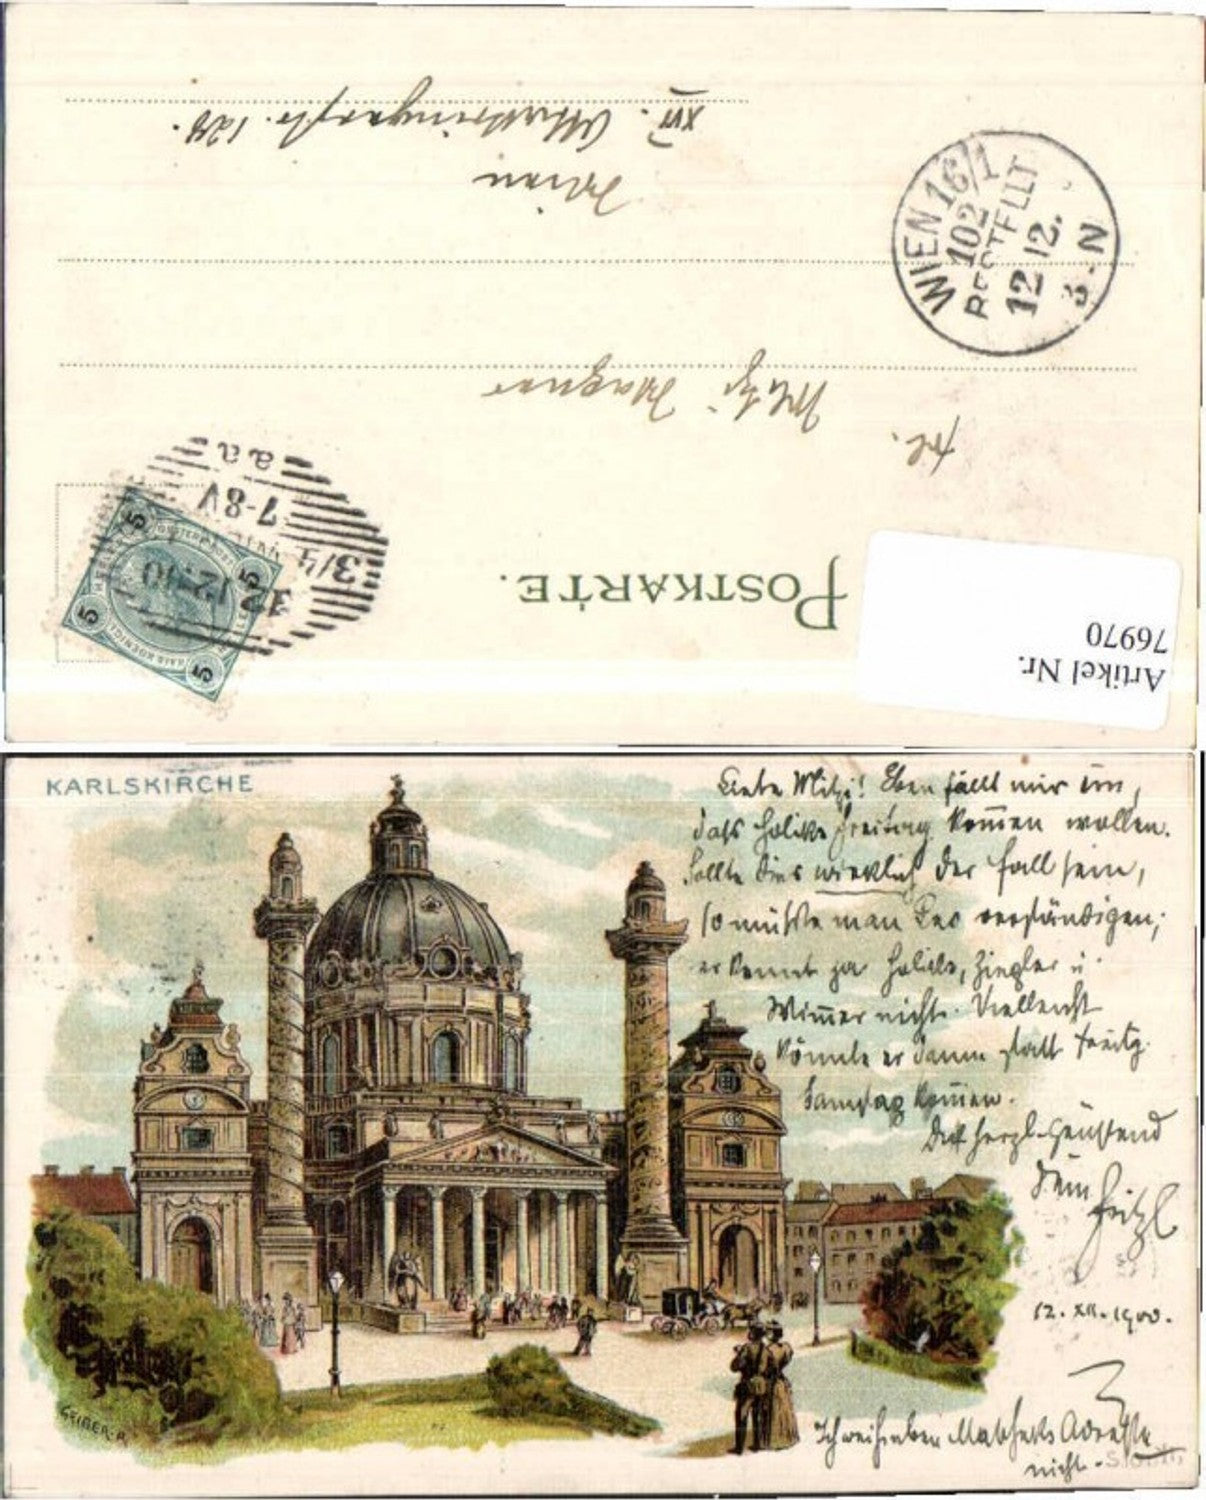 Artikel Nr.
76970
POSTKARTE.
Frl.
Mitzi Wagner
Wien
XVI. Ottakringerstr. 120.
5
5
5
5
12 12. 00
3/4
7-8V
a a
WIEN 16/1
102
BESTELLT
12 12.
3-N
KARLSKIRCHE
Liebe Mitzi! Eben fällt mir ein,
daß Holiks Freitag kommen wollen.
Sollte dies wirklich der Fall sein,
so müßte man Leo verständigen;
er kennt ja Holiks, Ziegler u.
Wimmer nicht. Vielleicht
könnte er dann statt Freitg.
Samstag kommen.
Dich herzl. Grüßend
Dein Fritzl
12. XII. 1900.
Ich weiß eben Adresse
nicht.
GEIGER. R.